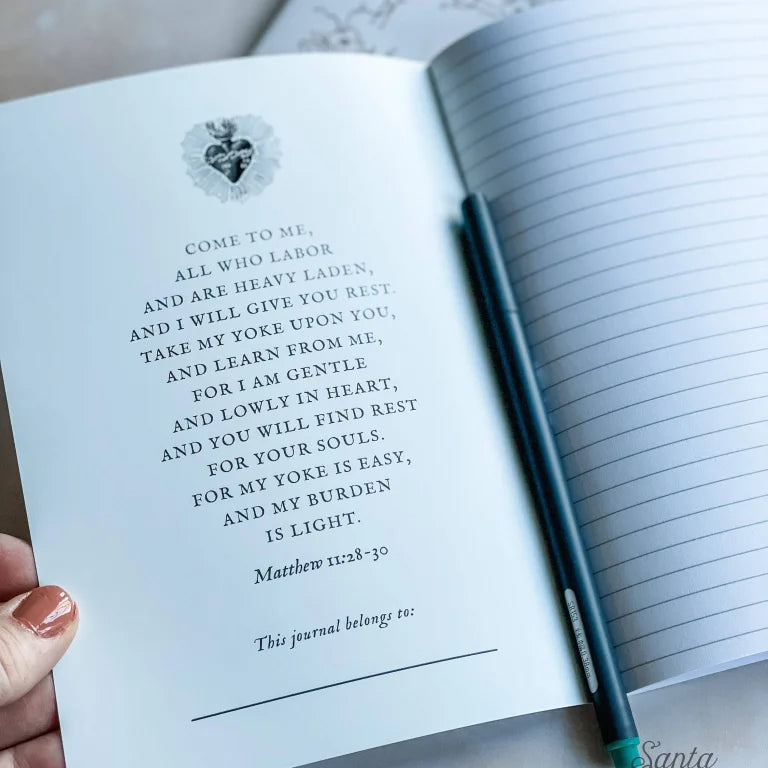 COME TO ME,
ALL WHO LABOR
AND ARE HEAVY LADEN,
AND I WILL GIVE YOU REST.
TAKE MY YOKE UPON YOU,
AND LEARN FROM ME,
FOR I AM GENTLE
AND LOWLY IN HEART,
AND YOU WILL FIND REST
FOR YOUR SOULS.
FOR MY YOKE IS EASY,
AND MY BURDEN
IS LIGHT.
Matthew 11:28-30
This journal belongs to:
Santa